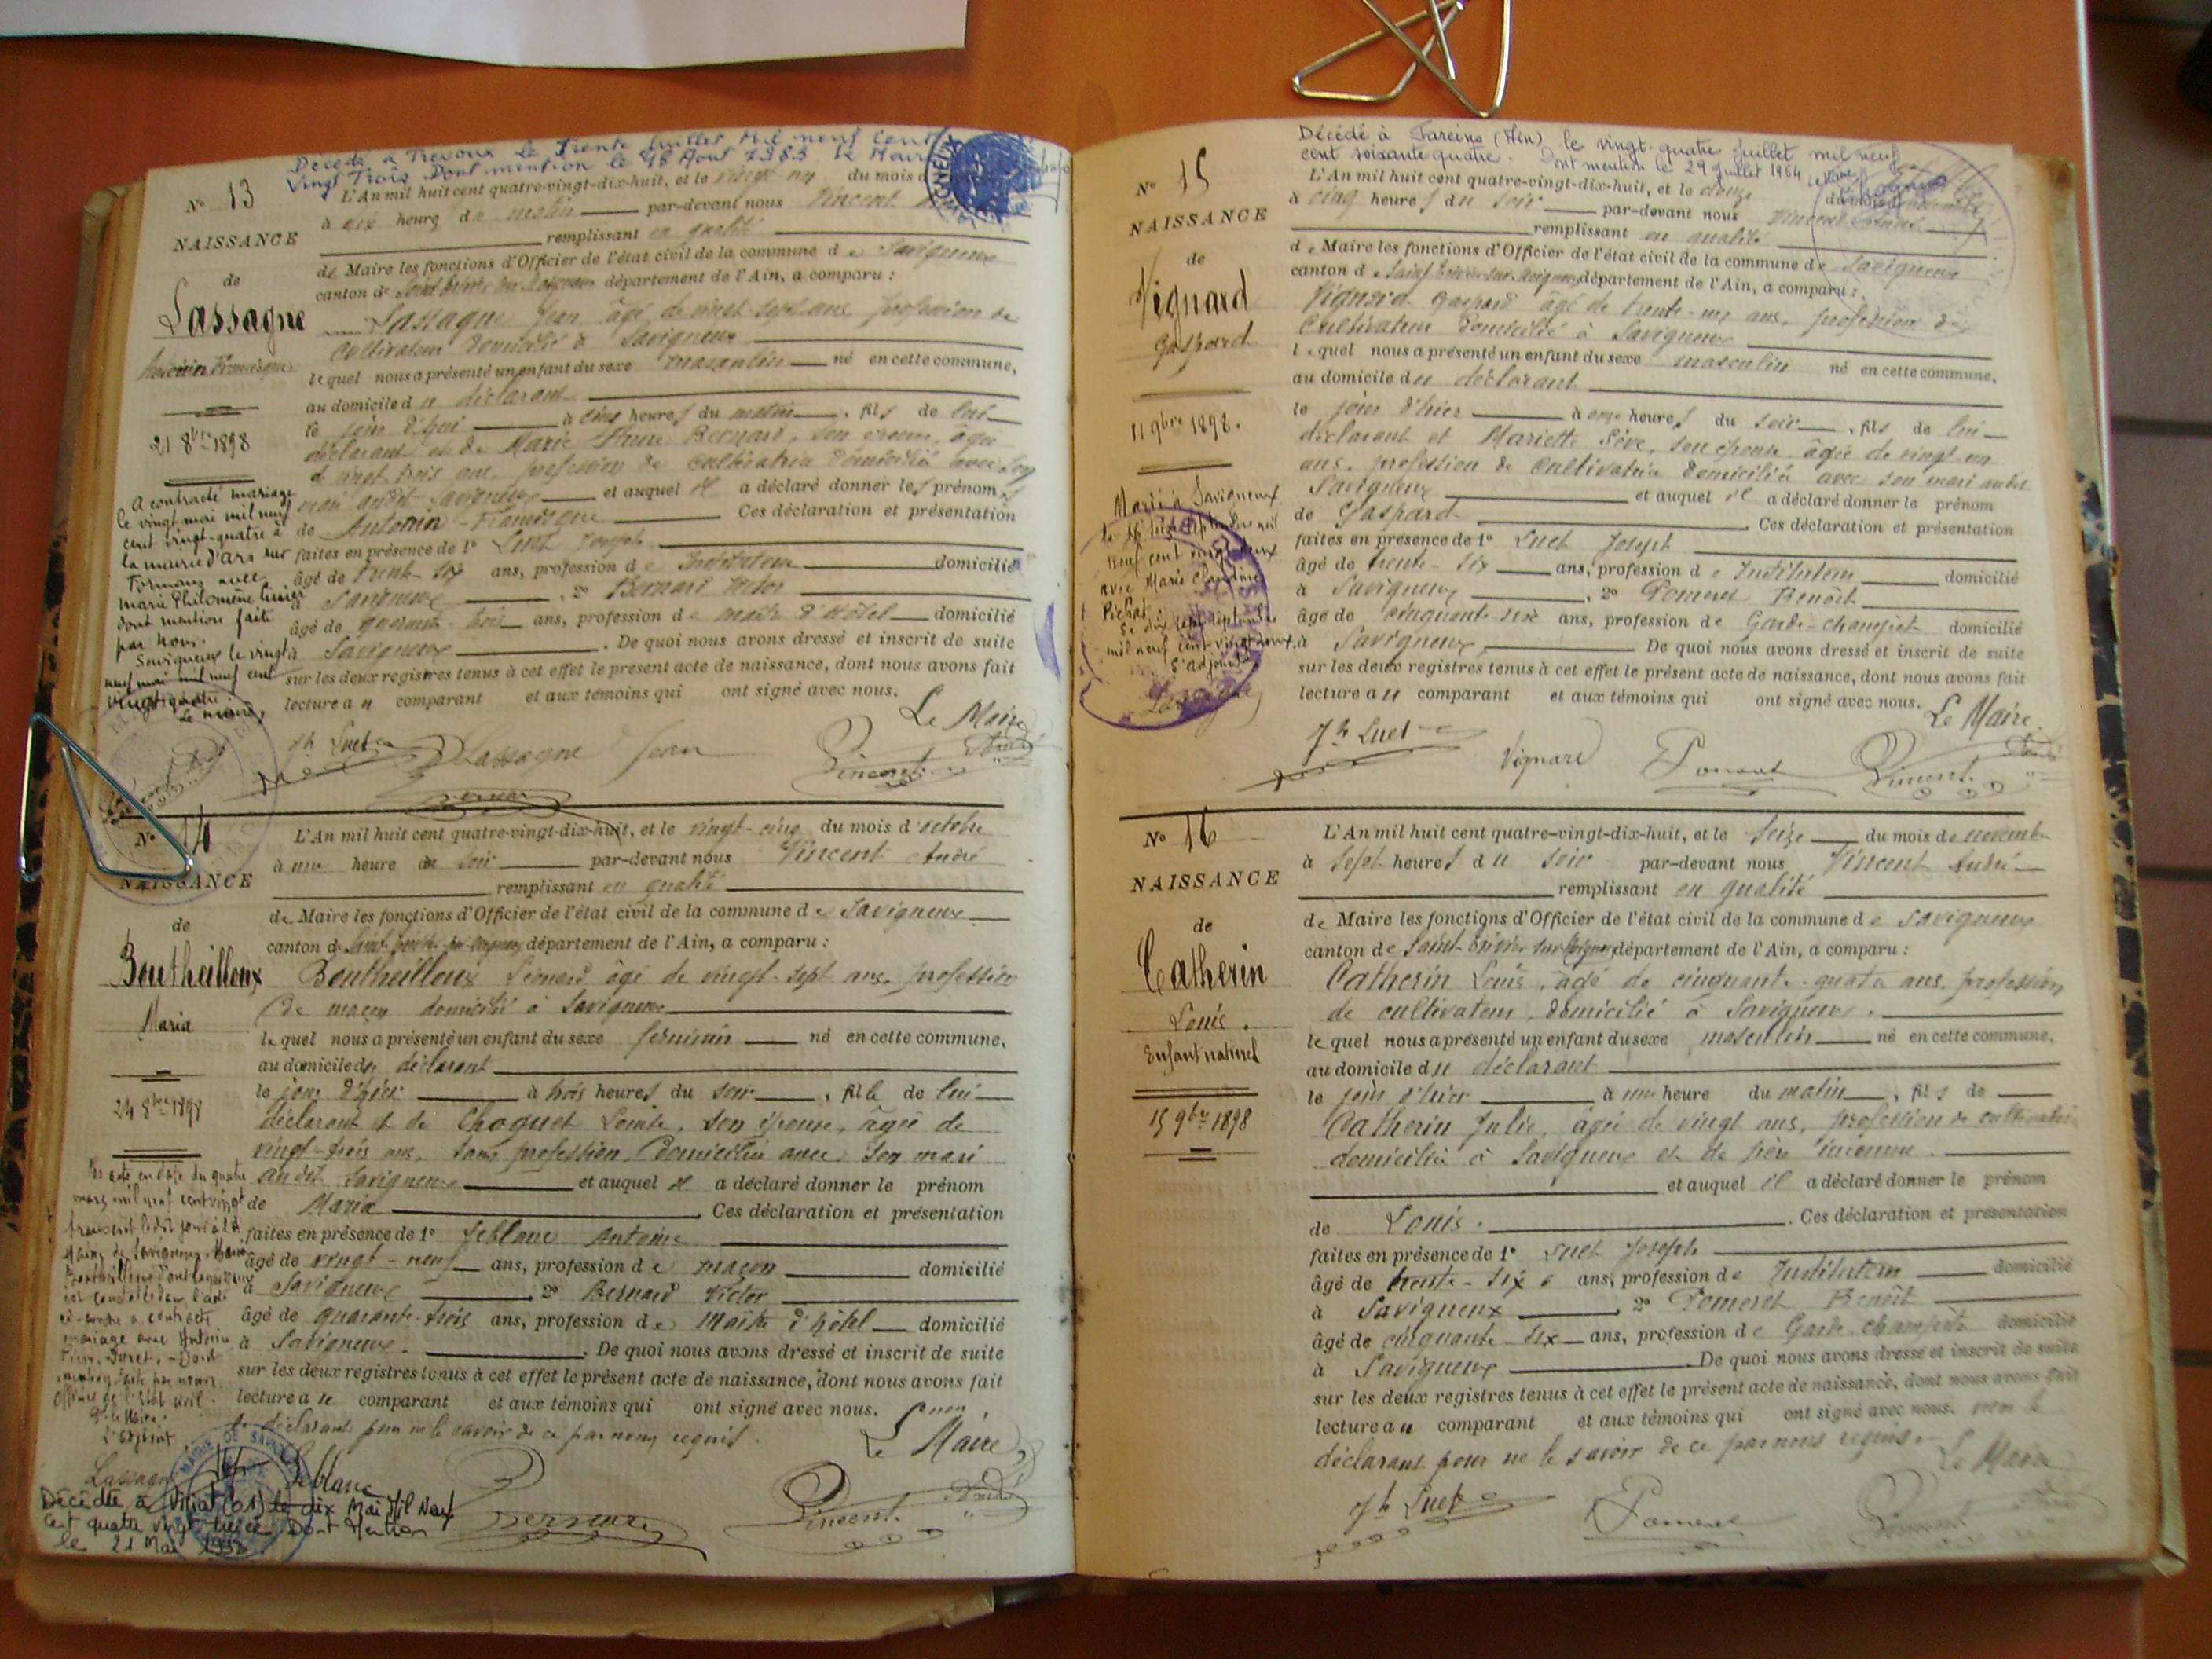 Décédé à Trévoux le Trente Juillet Mil neuf Cent
Vingt Trois Dont mention le 18 Août 1983 le Maire
N° 13
NAISSANCE
de
Lassagne
21 8bre 1898
A contracté mariage
le vingt mai mil neuf
cent vingt-quatre à
la mairie d'Ars sur
Formans avec
Marie Philomène
dont mention faite
par nous.
Savigneux le vingt
neuf mai mil neuf cent
vingt quatre
Le maire,
L'An mil huit cent quatre-vingt-dix-huit, et le vingt un du mois d
à heure du matin par-devant nous Vincent
remplissant en qualité
de Maire les fonctions d'Officier de l'état civil de la commune de Savigneux
canton de département de l'Ain, a comparu :
Lassagne Jean âgé de vingt sept ans profession de
cultivateur domicilié à Savigneux
lequel nous a présenté un enfant du sexe masculin né en cette commune,
au domicile du déclarant
le jour d'hui à cinq heures du matin, fils de lui
déclarant et de Marie Bernard, son épouse, âgée
de vingt trois ans, profession de cultivatrice domiciliée avec son
mari audit Savigneux et auquel il a déclaré donner les prénoms
de Antonin Ces déclaration et présentation
faites en présence de 1° Suet Joseph
âgé de trente-six ans, profession de Instituteur domicilié
à Savigneux, 2° Bernard Victor
âgé de quarante trois ans, profession de maître d'hôtel domicilié
à Savigneux. De quoi nous avons dressé et inscrit de suite
sur les deux registres tenus à cet effet le présent acte de naissance, dont nous avons fait
lecture au comparant et aux témoins qui ont signé avec nous.
Le Maire
Jh Suet Lassagne Jean Vincent
N° 14
NAISSANCE
de
Boutheilloux
Maria
24 8bre 1898
L'An mil huit cent quatre-vingt-dix-huit, et le vingt-cinq du mois d'octobre
à une heure du soir par-devant nous Vincent André
remplissant en qualité
de Maire les fonctions d'Officier de l'état civil de la commune de Savigneux
canton de département de l'Ain, a comparu :
Boutheilloux Léonard âgé de vingt-sept ans, profession
de maçon domicilié à Savigneux
lequel nous a présenté un enfant du sexe féminin né en cette commune,
au domicile du déclarant
le jour d'hier à trois heures du soir, fille de lui
déclarant et de Choquet, son épouse, âgée de
vingt-trois ans, sans profession, domiciliée avec son mari
audit Savigneux et auquel il a déclaré donner le prénom
de Maria. Ces déclaration et présentation
faites en présence de 1° Leblanc Antoine
âgé de vingt-neuf ans, profession de maçon domicilié
à Savigneux 2° Bernard Victor
âgé de quarante-trois ans, profession de Maître d'hôtel domicilié
à Savigneux. De quoi nous avons dressé et inscrit de suite
sur les deux registres tenus à cet effet le présent acte de naissance, dont nous avons fait
lecture au comparant et aux témoins qui ont signé avec nous.
déclarant pour ne le savoir de ce par nous requis.
Le Maire
Leblanc Bernard Vincent
Décédée à Viriat (01) le dix Mai Mil Neuf
Cent quatre vingt treize Dont Mention
le 21 Mai
Décédé à Fareins (Ain) le vingt-quatre juillet mil neuf
cent soixante quatre. Dont mention le 29 juillet 1964
N° 15
NAISSANCE
de
Vignard
Gaspard
11 9bre 1898.
Marié à Savigneux
le septembre mil
neuf cent vingt deux
avec Marie Claudine
Le dix sept septembre
mil neuf cent vingt deux
L'adjoint
L'An mil huit cent quatre-vingt-dix-huit, et le douze du mois de
à cinq heures du soir par-devant nous Vincent André
remplissant en qualité
de Maire les fonctions d'Officier de l'état civil de la commune de Savigneux
canton de département de l'Ain, a comparu :
Vignard Gaspard âgé de trente- ans, profession de
cultivateur domicilié à Savigneux
lequel nous a présenté un enfant du sexe masculin né en cette commune,
au domicile du déclarant
le jour d'hier à onze heures du soir, fils de lui
déclarant et Mariette Sève, son épouse âgée de vingt un
ans, profession de cultivatrice domiciliée avec son mari audit
Savigneux et auquel il a déclaré donner le prénom
de Gaspard. Ces déclaration et présentation
faites en présence de 1° Suet Joseph
âgé de trente-six ans, profession de Instituteur domicilié
à Savigneux, 2° Pomeret Benoît
âgé de cinquante six ans, profession de Garde-champêt domicilié
à Savigneux De quoi nous avons dressé et inscrit de suite
sur les deux registres tenus à cet effet le présent acte de naissance, dont nous avons fait
lecture au comparant et aux témoins qui ont signé avec nous.
Le Maire.
Jh Suet Vignard Pomeret Vincent
N° 16
NAISSANCE
de
Catherin
Louis.
Enfant naturel
15 9bre 1898
L'An mil huit cent quatre-vingt-dix-huit, et le seize du mois de novemb
à sept heures du soir par-devant nous Vincent André
remplissant en qualité
de Maire les fonctions d'Officier de l'état civil de la commune de Savigneux
canton de Saint-Trivier-sur-Moignans département de l'Ain, a comparu :
Catherin Louis, âgé de cinquante-quatre ans, profession
de cultivateur, domicilié à Savigneux.
lequel nous a présenté un enfant du sexe masculin né en cette commune,
au domicile du déclarant
le jour d'hier à une heure du matin, fils de
Catherin Julie, âgée de vingt ans, profession de cultivatrice
domiciliée à Savigneux et de père inconnu.
et auquel il a déclaré donner le prénom
de Louis. Ces déclaration et présentation
faites en présence de 1° Suet Joseph
âgé de trente-six ans, profession de Instituteur domicilié
à Savigneux 2° Pomeret Benoît
âgé de cinquante-six ans, profession de Garde-champêtre domicilié
à Savigneux De quoi nous avons dressé et inscrit de suite
sur les deux registres tenus à cet effet le présent acte de naissance, dont nous avons fait
lecture au comparant et aux témoins qui ont signé avec nous. non le
déclarant pour ne le savoir de ce par nous requis.
Le Maire
Jh Suet Pomeret Vincent